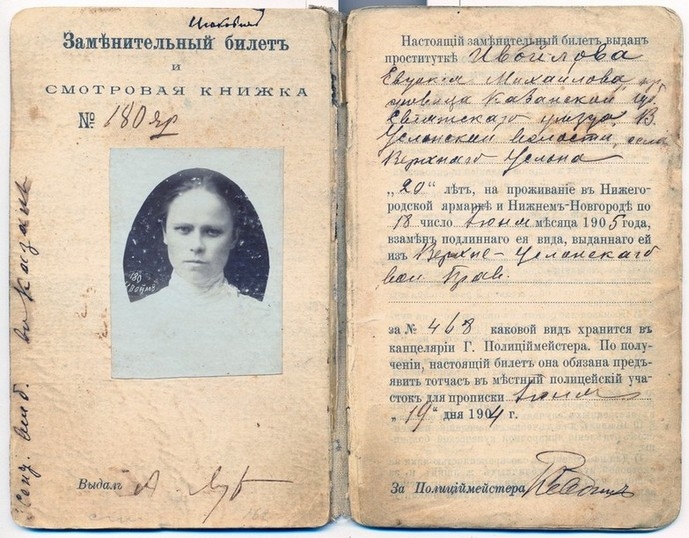 Замѣнительный билетъ
и
СМОТРОВАЯ КНИЖКА
№ 180 яр
180
Выдалъ
въ Казань
Настоящій замѣнительный билетъ выданъ
проституткѣ Ивойлова
Михайлова
Казанской гу.
уѣзда, В.
Услонской волости, села
Верхняго Услона
„20“ лѣтъ, на проживаніе въ Нижего-
родской ярмаркѣ и Нижнемъ-Новгородѣ по
18 число Іюня мѣсяца 1905 года,
взамѣнъ подлиннаго ея вида, выданнаго ей
изъ Верхне-Услонскаго
вол. Прав.
за № 468 каковой видъ хранится въ
канцеляріи Г. Полиціймейстера. По полу-
ченіи, настоящій билетъ она обязана предъ-
явить тотчасъ въ мѣстный полицейскій уча-
стокъ для прописки Іюня
„19“ дня 1904 г.
За Полиціймейстера